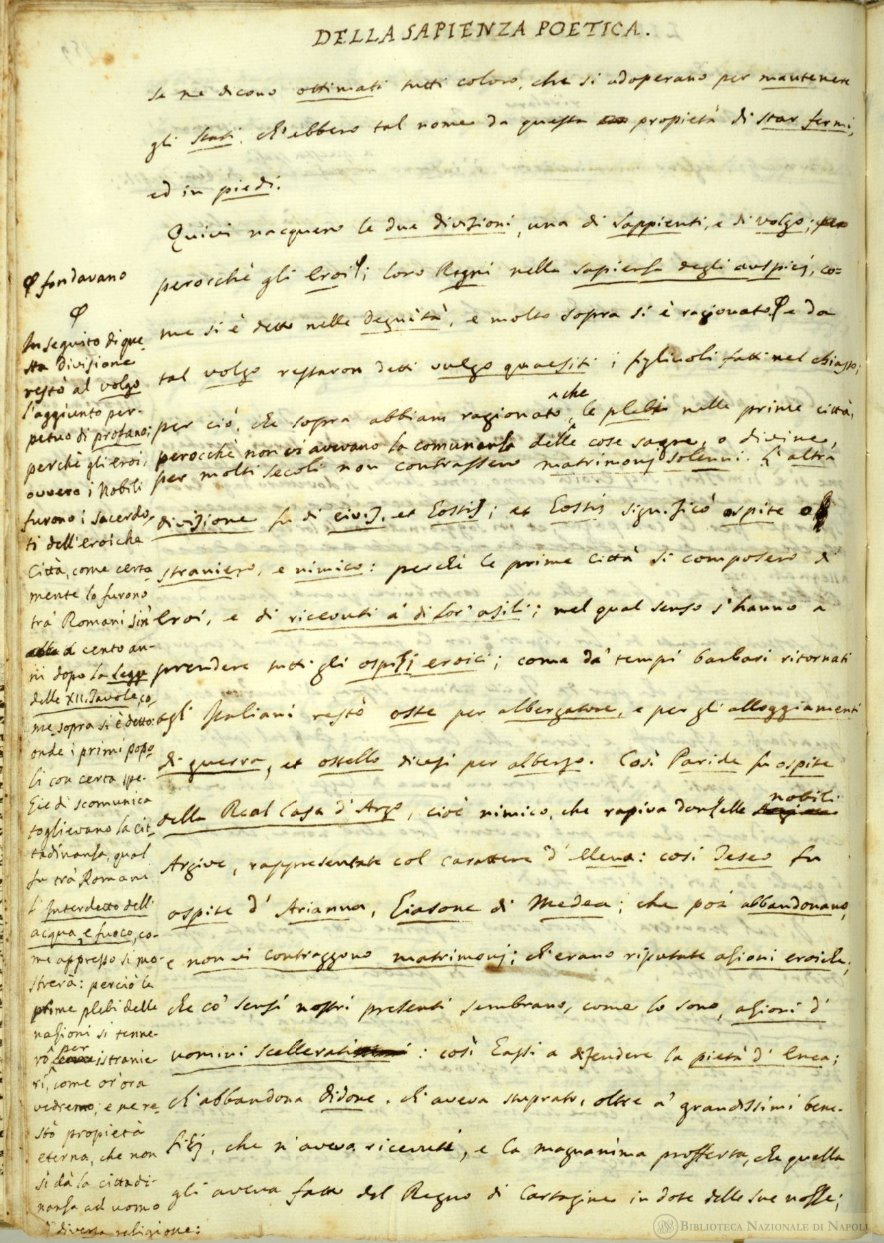 DELLA SAPIENZA POETICA.
se ne dicono ottimati tutti coloro, che si adoperano per mantenere
gli Stati, ch'ebbero tal nome da questa propietà di star fermi,
ed in piedi.
Quivi nacquero le due divisioni, una di Sappienti, e di volgo;
perocchè gli Eroi φ i loro Regni nella sapienza degli auspicj, co-
me si è detto nelle Degnità, e molto sopra si è ragionato φ e da
tal volgo restaron detti vulgo quaesiti i figliuoli fatti nel chiasso;
per ciò, che sopra abbiam ragionato, che le plebi nelle prime città,
perocchè non vi avevano la comunanza delle cose sagre, o divine,
per molti secoli non contrassero matrimonj solenni. L'altra
divisione fu di civis, et hostis; et hostis significò ospite o
straniero, e nimico: perchè le prime città si composero di
Eroi, e di ricevuti a' di lor' asili; nel qual senso s'hanno a
prendere tutti gli ospizj eroici; come da' tempi barbari ritornati
agl' Italiani restò oste per albergatore, e per gli alloggiamenti
di guerra, et ostello dicesi per albergo. Così Paride fu ospite
della Real Casa d'Argo, cioè nimico, che rapiva donzelle nobili
Argive, rappresentate col carattere d'Elena: così Teseo fu
ospite d'Arianna, Giasone di Medea; che poi abbandonano,
e non vi contraggono matrimonj; ch'erano riputate azioni eroiche,
che co' sensi nostri presenti sembrano, come lo sono, azioni d'
uomini scellerati: così hassi a difendere la pietà d'Enea;
ch'abbandona Didone, ch'aveva stuprato, oltre a' grandissimi bene-
ficj, che n'aveva ricevuti, e la magnanima profferta, che quella
gli aveva fatto del Regno di Cartagine in dote delle sue nozze;
φ fondavano
φ
In seguito di que-
sta divisione
restò al volgo
l'aggiunto per-
petuo di profano;
perchè gli eroi,
ovvero i Nobili
furono i sacerdo-
ti dell'eroiche
Città, come certa
mente lo furono
trà Romani sin'
a cento an-
ni dopo la Legge
delle XII. Tavole, co-
me sopra si è detto:
onde i primi popo-
li con certa spe-
zie di scomunica
toglievano la cit-
tadinanza, qual
fu trà Romani
l'Interdetto dell'
acqua, e fuoco, co-
me appresso si mo-
strerà: perciò le
prime plebi delle
nazioni si tenne-
ro per istranie-
ri, come or'ora
vedremo; e ne re-
stò propietà
eterna, che non
si dà la cittadi-
nanza ad uomo
di diversa religione:
BIBLIOTECA NAZIONALE DI NAPOLI